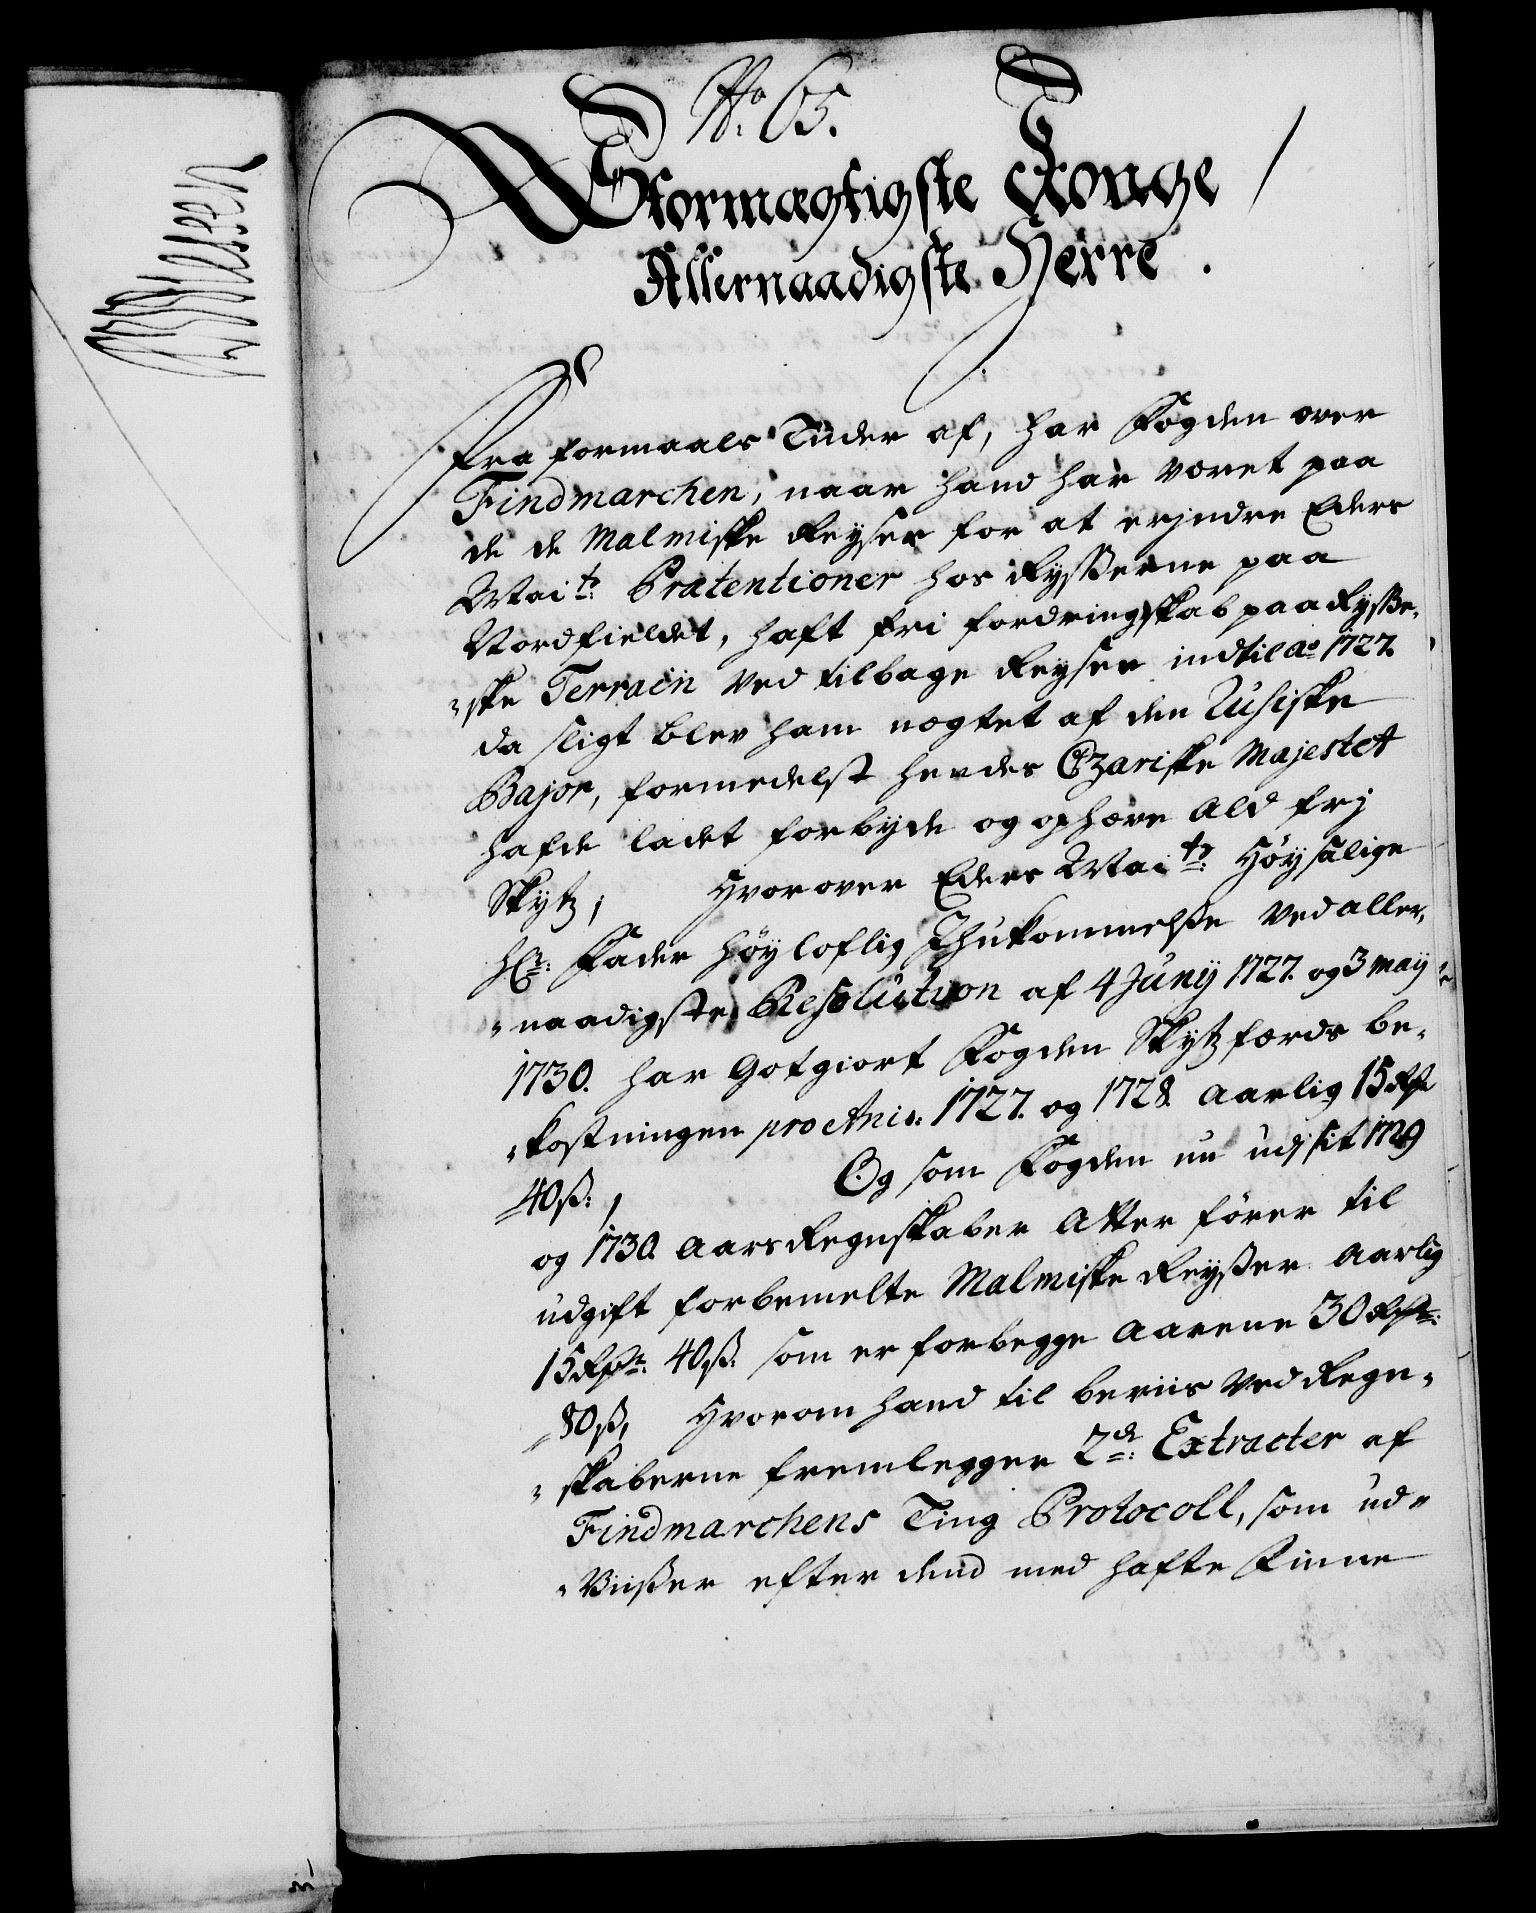 No: 65.
Stormægtigste Konge
Allernaadigste Herre.
Fra formaals Tider af, har Fogden over
Findmarchen, naar hand har været paa
de de Malmiske Reyser for at erjndre Eders
Mai.ts Prætentioner hos Rysserne paa
Nordfieldet, haft fri fordringskab paa Rysse-
„ske Terrain ved tilbage Reysen indtil Ao 1727.
da sligt blev ham nægtet af den Rusiske
Bajor, formedelst hendes Czariske Majestet
hafde ladet forbyde og ophæve ald frj
Skytz, Hvorover Eders Mai.ts Høysalige
Hr: Fader Høyloflig Jhukommelsse ved aller-
„naadigste Resolution af 4 Junij 1727. og 3 maij
1730. har Gotgiort Fogden Skytzferds be-
„kostningen pro Anis: 1727. og 1728. aarlig 15 Rdr
40 ß:, Og som Fogden nu udj sit 1729
og 1730. aars Regnskaber atter fører til
udgift forbemelte Malmiske Reysser aarlig
15 Rdr: 40 ß: som er for begge aarene 30 Rdr:
80 ß, Hvorom hand til beviis ved Regn-
„skaberne fremlegger 2de: Extracter af
Findmarchens Ting Protocoll, som ud-
„Viisser efter dend med hafte Finne